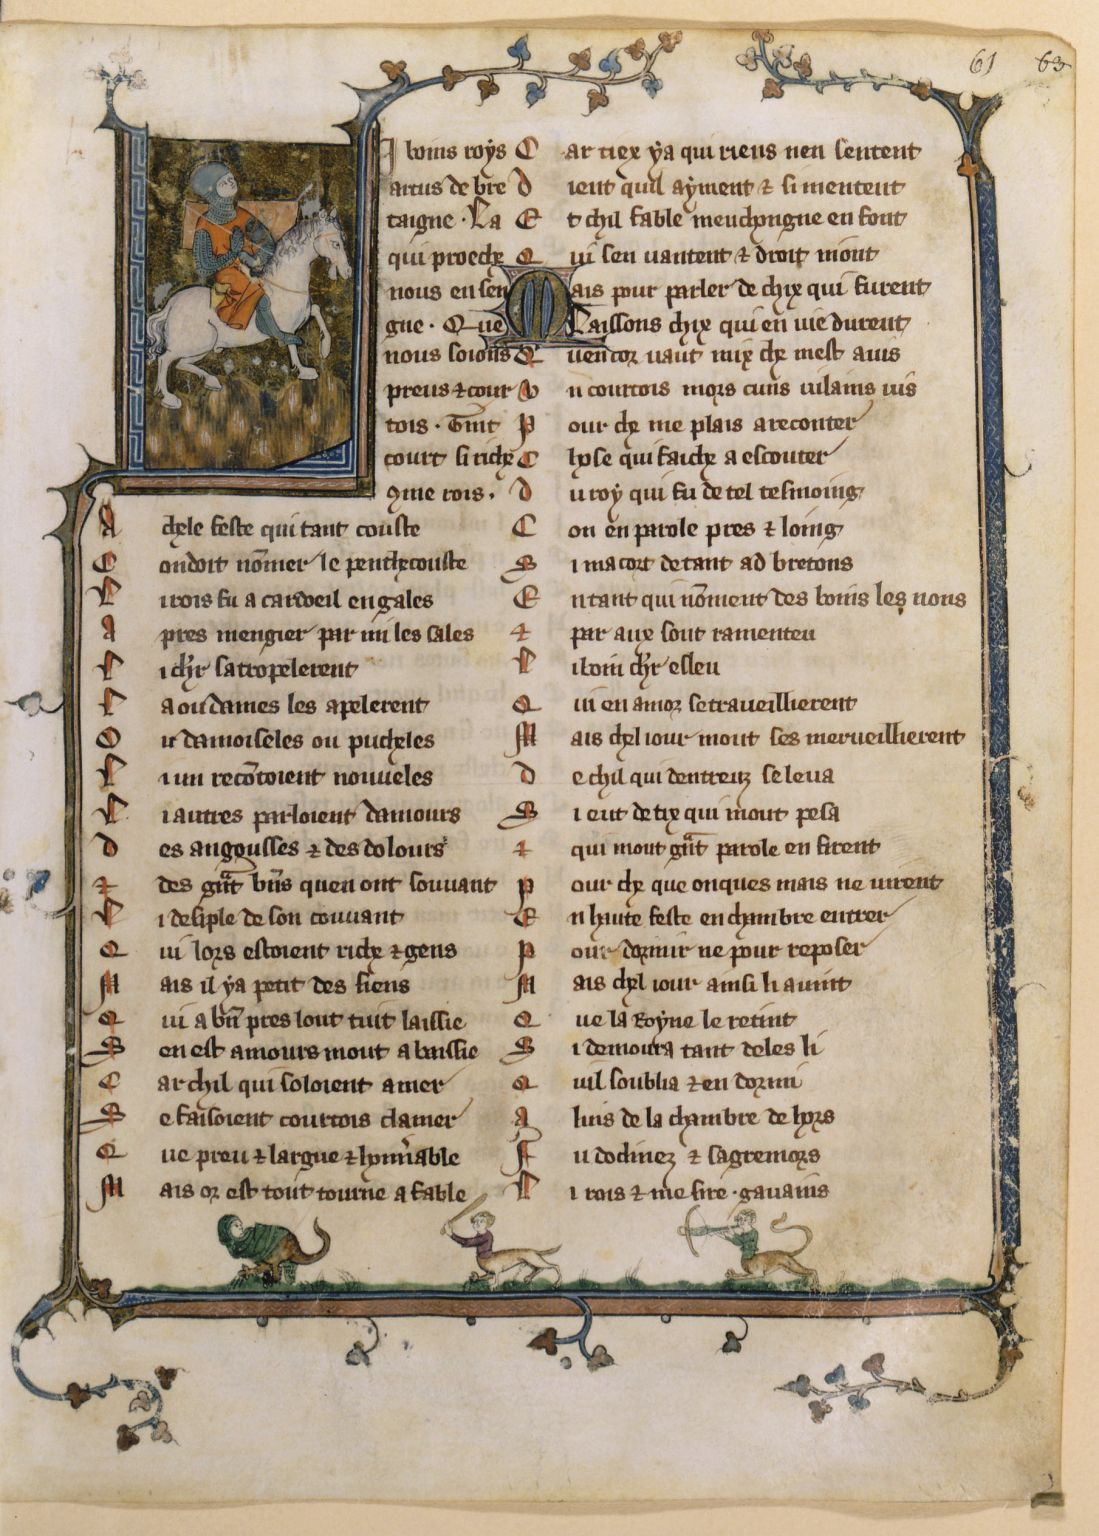 61 63
Li boins roys
artus de bre
taigne · La
qui proeche
nous ensen
gne · Que
nous soions
preus ⁊ cour
tois · Tint
court si riche
9me rois ·
A chele feste qui tant couste
Con doit nōmer le penthecouste
Li rois fu a cardoeil en gales
Apres mengier par mi les sales
Li chꝰr satropelerent
La ou dames les apelerent
Ou damoiseles ou pucheles
Li un recōtoient nouueles
Li autres parloient damours
Des angousses ⁊ des dolours
⁊ des gᵃt biēs quen ont souuant
Li desiple de son couuant
Qui lors estoient riche ⁊ gens
Mais il ya petit des siens
Qui a bn̄ pres lout tuit laissie
Sen est amours mout abaissie
Car chil qui soloient amer
Se faisoient courtois clamer
Que preu ⁊ largue ⁊ hōn̄rable
Mais or est tout tourne a fable
Car tiex ya qui riens nen sentent
Dient quil ayment ⁊ si mentent
Et chil fable menchongne en font
Qui sen uantent ⁊ droit mont
Mais pour parler de chix qui furent
Laissons chix qui en uie durent
Quencor uaut mix che mest auis
Vn courtois mors cuns uilains uis
Pour che me plais a reconter
Chose qui faiche a escouter
Du roy qui fu de tel tesmoing
Con en parole pres ⁊ loing
Si macort de tant ad bretons
En tant qui nōment des boins les nons
⁊ par aux sont ramenteu
Li boin chꝰr esleu
Qui en amor se traueillierent
Mais chel iour mout ses merueillierent
De chil qui dentreuz se leua
Si eut de tix qui mout pesa
⁊ qui mout gᵃt parole en firent
Pour che que onques mais ne uirent
En haute feste en chambre entrer
Pour dormir ne pour reposer
Mais chel iour ainsi li auint
Que la Royne le retint
Si demoura tant deles li
Quil soublia ⁊ en dormi
A luis de la chambre de hors
Fu dodinez ⁊ sagremors
Li rois ⁊ me sire · gauains